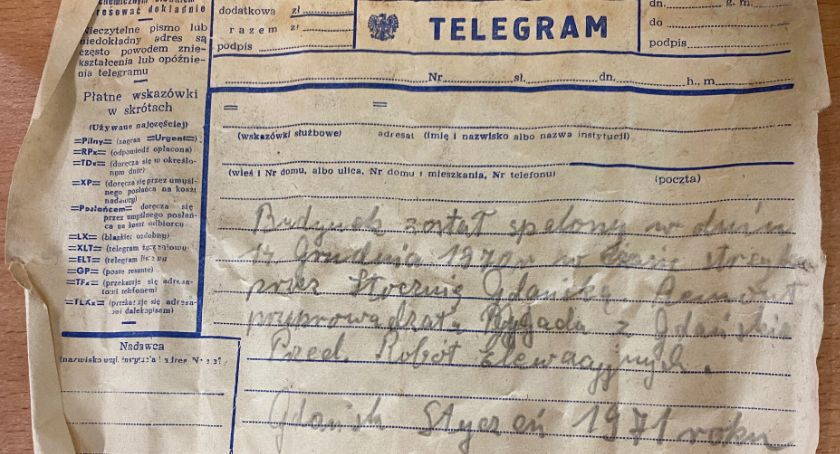 resować dokładnie
Nieczytelne pismo lub
niedokładny adres są
często powodem znie-
kształcenia lub opóźnie-
nia telegramu
Płatne wskazówki
w skrótach
(Używane najczęściej)
=Pilny= (zagran =Urgent=)
=RPx= (odpowiedź opłacona)
=TDx= (doręcza się w określo-
nym dniu)
=XP= (doręcza się przez umyśl-
nego posłańca na koszt
nadawcy)
=Posłańcem= doręcza się
przez umyślnego posłań-
ca na koszt odbiorcy
=LX= (blankiet ozdobny)
=XLT= (telegram
=ELT= (telegram listowy)
=GP= (poste restante)
=TFx= (przekazuje się adresa-
towi telefonem)
=TLXx= (przekazuje się adresa-
towi dalekopisem)
Nadawca
dodatkowa zł
razem zł
podpis
TELEGRAM
dn. g. m.
do
podpis
Nr sł. dn. h., m.
= =
(wskazówki służbowe) adresat (imię i nazwisko albo nazwa instytucji)
(wieś i Nr domu, albo ulica, Nr domu i mieszkania, Nr telefonu) (poczta)
Budynek został spalony w dniu
14 Grudnia 1970 r w czasie
przez Stocznię Gdańską. Remont
Brygada z Gdańskie
Przed. Robót Elewacyjnych.
Gdańsk Styczeń 1971 roku